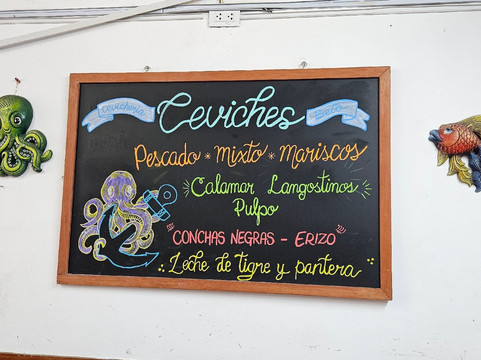 Cevichería
Ceviches
Beto
Pescado * Mixto * Mariscos
Calamar Langostinos
Pulpo
"CONCHAS NEGRAS - ERIZO"
Leche de tigre y pantera